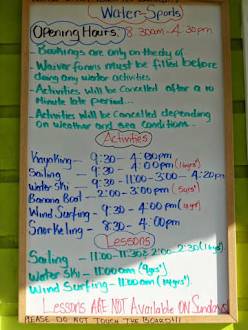 Water-Sports
Opening Hours: 8:30am-4:30pm
- Bookings are only on the day of
- Waiver forms must be filled before
doing any water activities
- Activities will be cancelled after a 10
Minute late period...
- Activities will be cancelled depending
on weather and sea conditions...
Activities
Kayaking - 9:30 - 4:00pm
Sailing - 9:30 - 4:00pm (16yrs)
Water Ski - 9:30 - 11:00 - 3:00 - 4:20pm
Banana Boat - 2:00 - 3:00pm (5yrs)
Wind Surfing - 9:30 - 4:00pm
Snorkeling - 8:30 - 4:00pm
Lessons
Sailing - 11:00-11:30 & 2:00-2:30
Water Ski - 11:00am (9yrs)
Wind Surfing - 11:00am (14yrs)
Lessons ARE NOT Available ON Sundays
PLEASE DO NOT TOUCH THE BOARD!!!